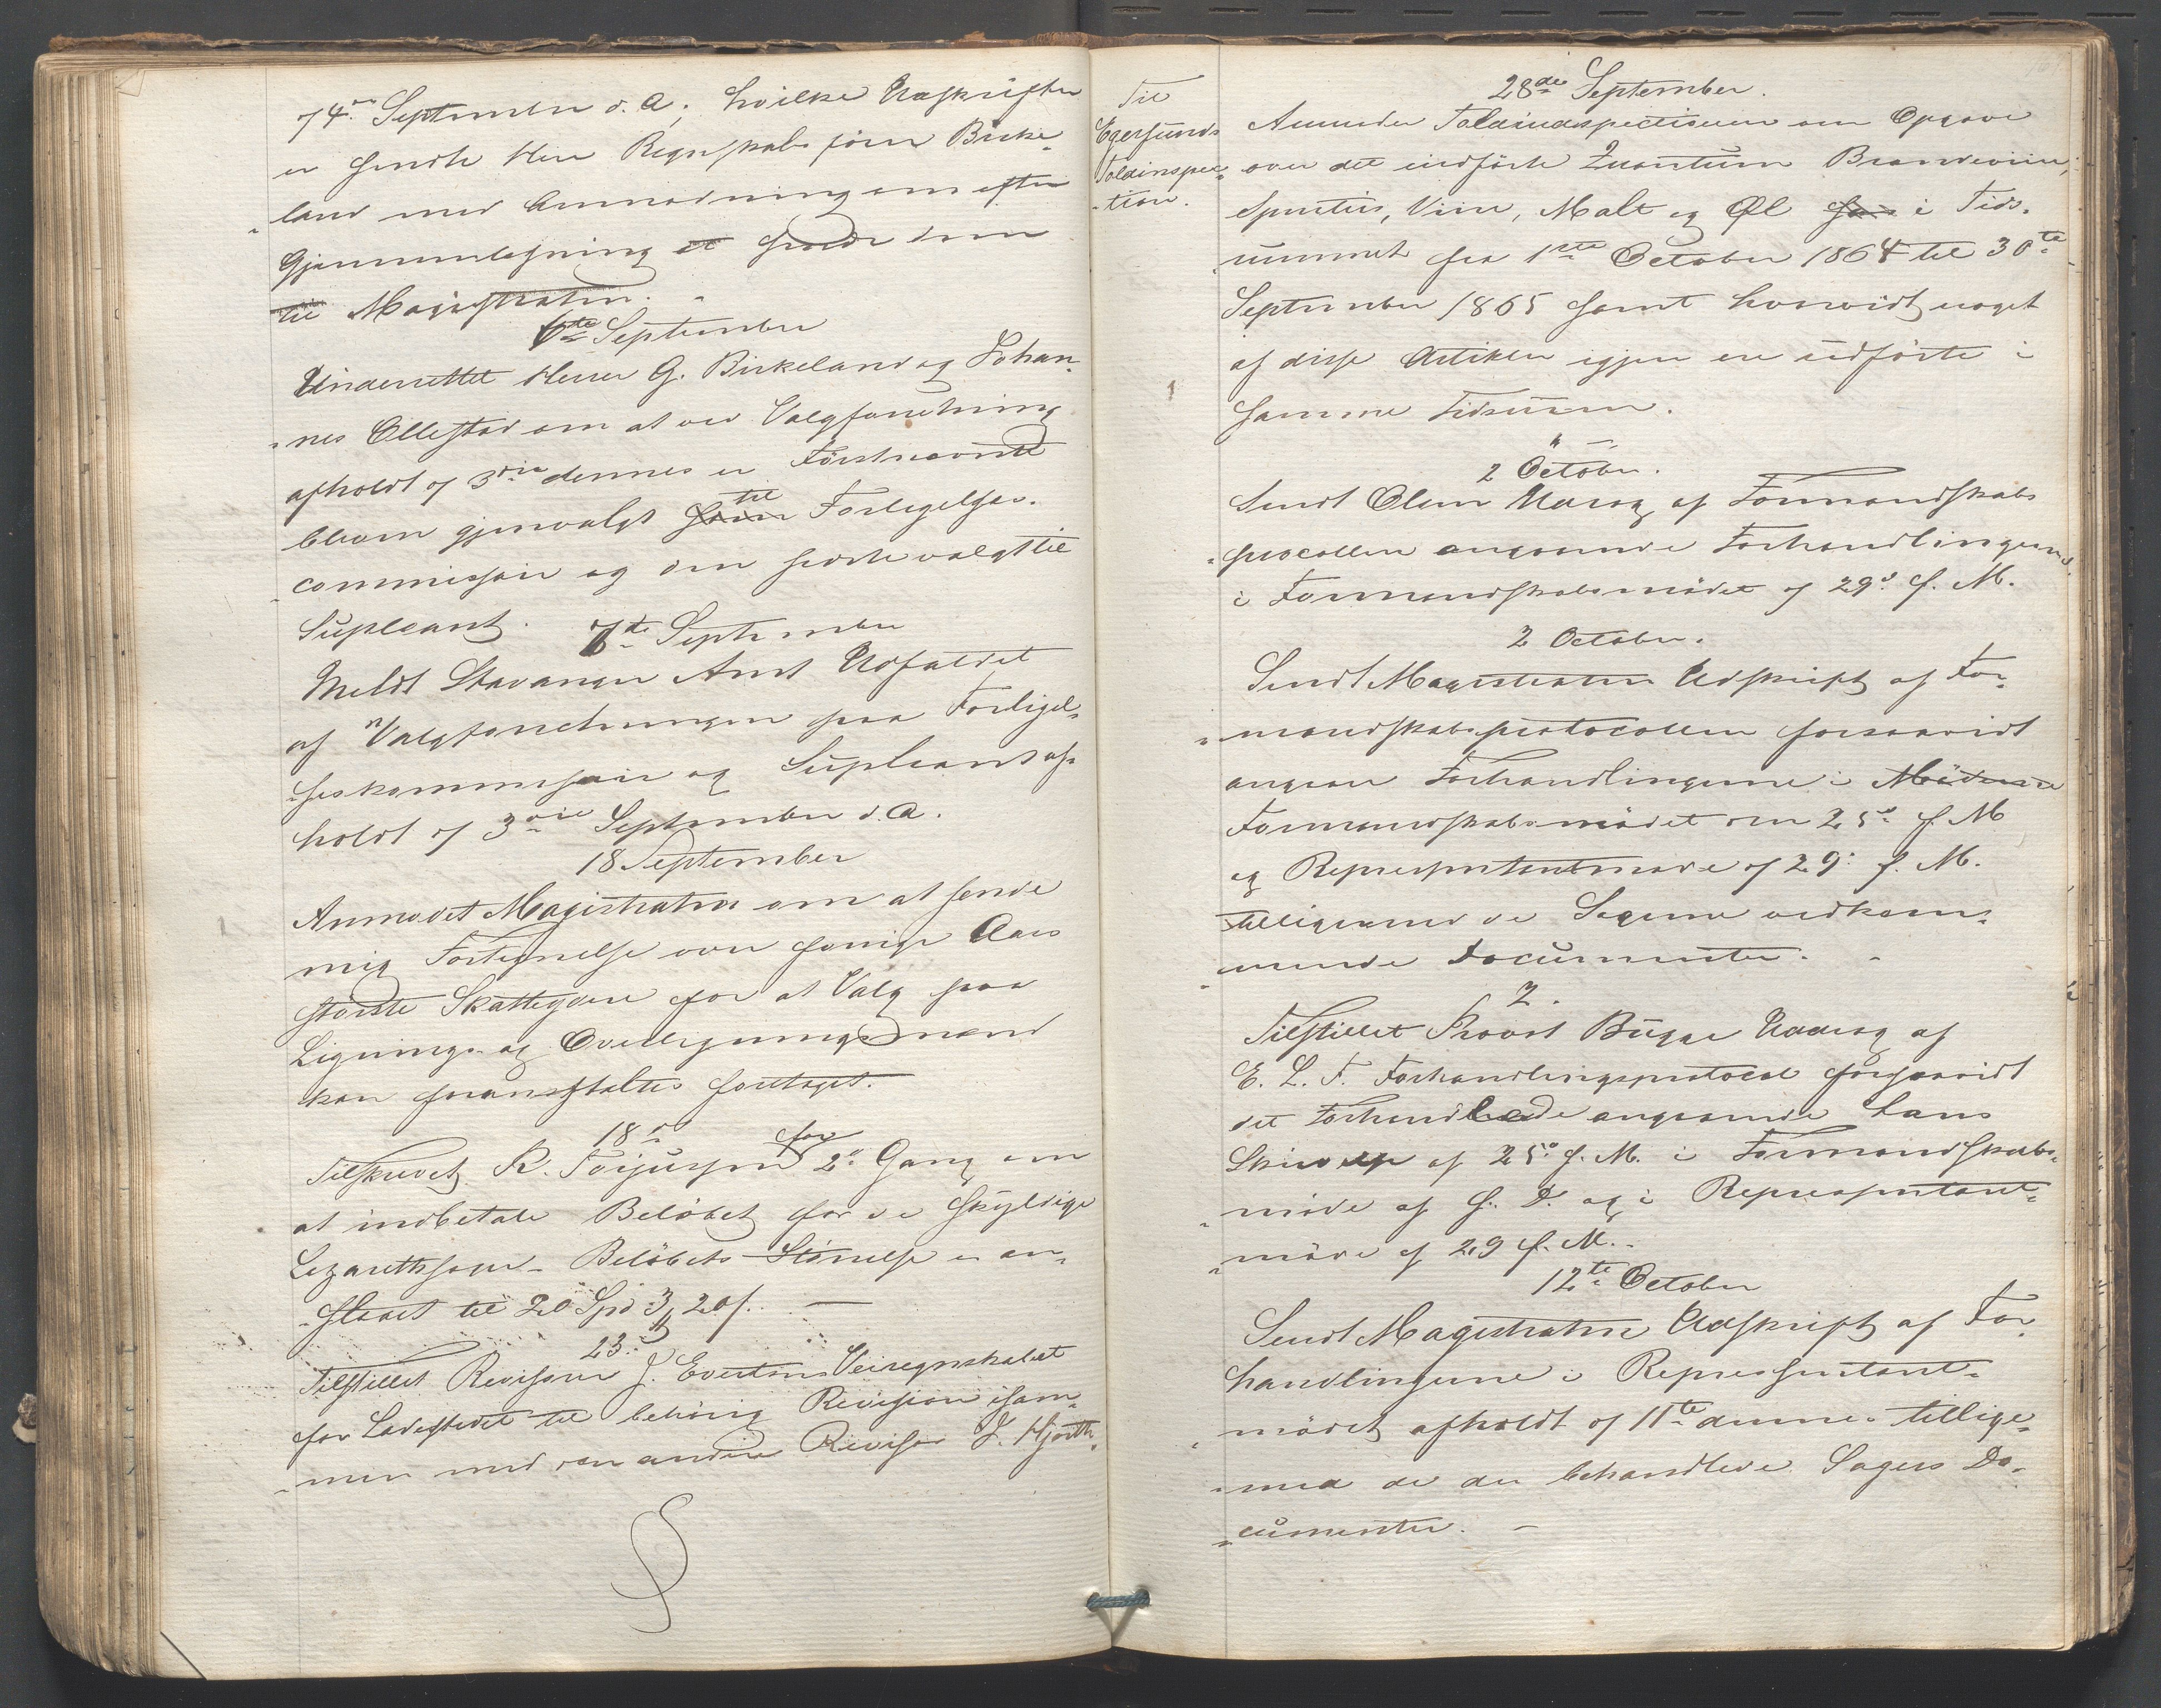 74. September d. A., hvilke Udskrifter
er sendte Herr Regnskabsfører Birke-
land med Anmodning om efter
Gjennemlesning at sende dem
til Magistraten.
6te September
Underrettet Herrer G. Birkeland og Johan-
nes Ollestad om at ved Valgforretning
afholdt 3die dennes er Førstnævnte
bleven gjenvalgt som til Forligelses-
commissair og den sidste valgt til
Supleant.
7de September
Meldt Stavanger Amt Udfaldet
af Valgforretningen paa Forligel-
seskommissair og Supleant af-
holdt 3die September d. A.
18 September
Anmodet Magistraten om at sende
mig Fortegnelse over forrige Aars
største Skatteydere for at Valg paa
Lignings- og Overligningsmænd
kan foranstaltes foretaget.
18de
Tilskrevet R. Torjussen for 2de Gang om
at indbetale Beløbet for de skyldige
Lazarethsager. Beløbets Størrelse er an-
slaaet til 20 Spd 3 20 s.
23.
Tilstillet Revisor J. Evertsen Veiregnskabet
for Ladestedet til behørig Revision isam-
men med den anden Revisor J. Hjorth.
Til
Egersunds
Toldinspec-
tion.
28de September.
Anmodet Toldindspectionen om Opgave
over det indførte Quantum Brændeviin,
Spiritus, Viin, Malt og Øl i Tids-
rummet fra 1ste October 1864 til 30te
September 1865 samt hvorvidt noget
af disse Artikler igjen ere udførte i
samme Tidsrum.
2 October.
Sendt Olsen Udtog af Formandskabs
procollen angaaende Forhandlingerne
i Formandskabsmødet 29de f. M.
2 October.
Sendt Magistraten Udskrift af For-
mandskabsprotocollen forsaavidt
angaar Forhandlingerne i Møderne
Formandskabsmødet den 25de f. M
og Representantmøde 29. f. M.
tilligemed de Sagerne vedkom-
mende Documenter.
2.
Tilstillet Provst Bugge Uddrag af
E. L. F. Forhandlingsprotocol forsaavidt
det Forhandlede angaaende hans
Skrivelse af 25de f. M. i Formandskabs-
møde af s. D. og i Representant-
møde af 29 f. M.
12te October
Sendt Magistraten Udskrift af For-
handlingerne i Representant-
mødet afholdt 11te dennes tillige-
med de der behandlede Sagers Do-
cumenter.